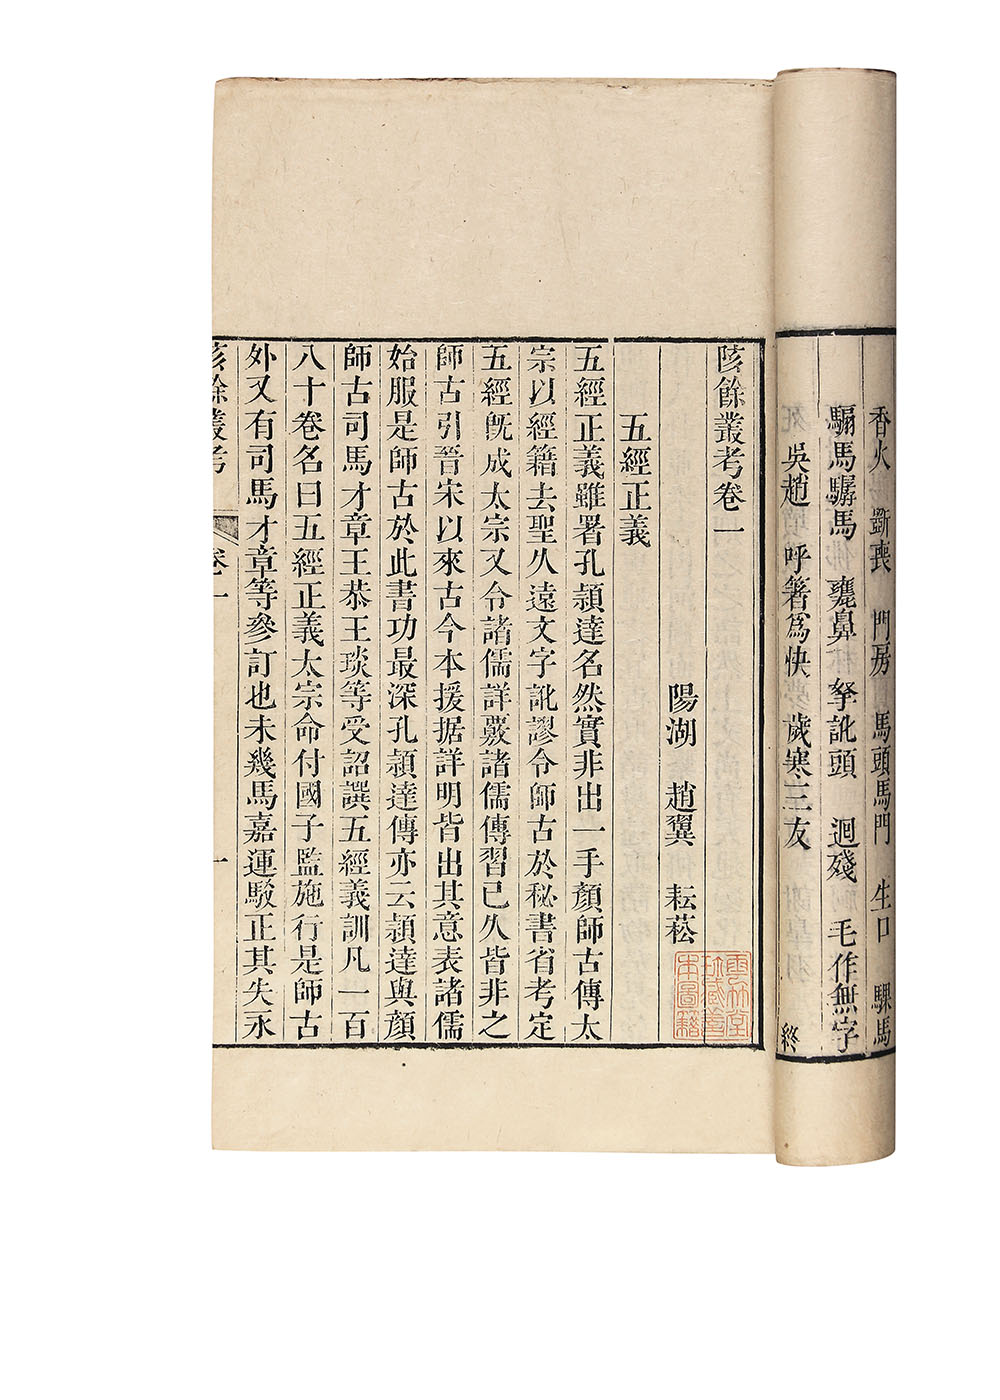 香火 斲喪 門房 馬頭馬門 生口 騍馬
騸馬驏馬 齆鼻 拏訛頭 迴殘 毛作無字
吳趙 呼箸爲快 歲寒三友 終
陔餘叢考卷一
陽湖 趙翼 耘菘
五經正義
五經正義雖署孔頴達名然實非出一手顏師古傳太
宗以經籍去聖久遠文字訛謬令師古於秘書省考定
五經既成太宗又令諸儒詳覈諸儒傳習已久皆非之
師古引晉宋以來古今本援据詳明皆出其意表諸儒
始服是師古於此書功最深孔頴達傳亦云頴達與顏
師古司馬才章王恭王琰等受詔譔五經義訓凡一百
八十卷名曰五經正義太宗命付國子監施行是師古
外又有司馬才章等參訂也未幾馬嘉運駁正其失永
陔餘叢考 卷一 一
珍藏善
本圖籍